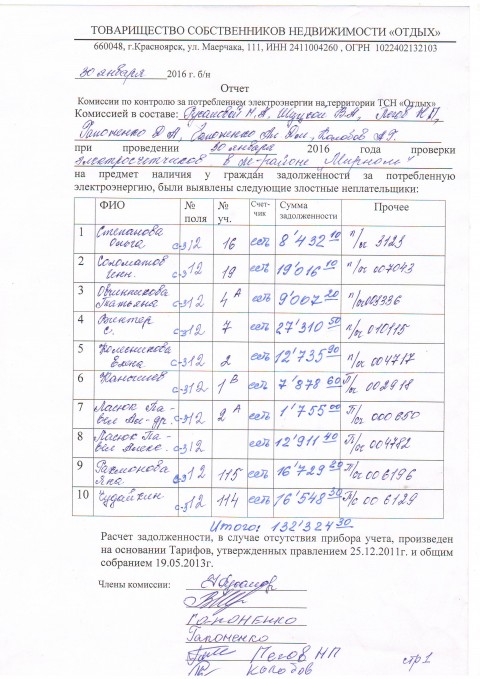 ТОВАРИЩЕСТВО СОБСТВЕННИКОВ НЕДВИЖИМОСТИ «ОТДЫХ»
660048, г.Красноярск, ул. Маерчака, 111, ИНН 2411004260 , ОГРН 1022402132103
30 января 2016 г. б/н
Отчет
Комиссии по контролю за потреблением электроэнергии на территории ТСН «Отдых»
Комиссией в составе: Русановой Н.А, В.А, Пегов Н.П,
Гапоненко Д А, Гапоненко Ал Дм, Колобов А.Г.
при проведении 30 января 2016 года проверки
электросчетчиков в ж-районе Мирном"
на предмет наличия у граждан задолженности за потребленную
электроэнергию, были выявлены следующие злостные неплательщики:
ФИО № поля № уч. Счет-чик Сумма задолженности Прочее
1 Степанова Ольга с-з 12 16 есть 8'432 10 п/сч 3123
2 Соломатов Генн. с-з 12 19 есть 19'016 10 п/сч 007043
3 Овчинникова Татьяна с-з 12 4 А есть 9'007 20 п/сч
4 Винтер С. с-з 12 7 есть 27'310 50 п/сч 010115
5 Колесникова Елена с-з 12 2 есть 12'735 90 п/сч 004717
6 с-з 12 1 В есть 7'878 60 П/сч 002918
7 Ласюк Павел Ал-др. с-з 12 2 А есть 1'755 00 П/сч 000650
8 Ласюк Павел Алекс. с-з 12 12'911 40 П/сч 004782
9 Рахмонова Яна с-з 12 115 есть 16'729 20 П/сч 006196
10 Чудайкин с-з 12 114 есть 16'548 30 П/с 00 6129
Итого: 132'324 30
Расчет задолженности, в случае отсутствия прибора учета, произведен
на основании Тарифов, утвержденных правлением 25.12.2011г. и общим
собранием 19.05.2013г.
Члены комиссии:
Гапоненко
Гапоненко
Пегов НП
Колобов
стр 1